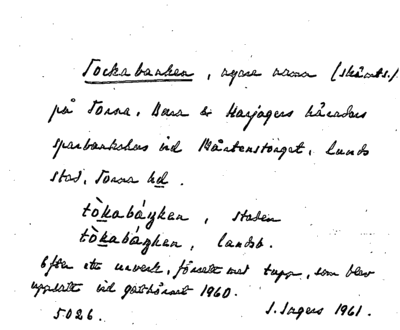 Tockabanken, nyare namn (skämts.)
på Torna, Bara & Harjagers härads
sparbankshus vid Mårtenstorget, Lunds
stad, Torna hd.
tòkabáŋken, staden
tòkabáŋken, landsb.
Efter ett urverk, försett med tupp, som blev
uppsatt vid 1960.
5026. S. Ingers 1961.